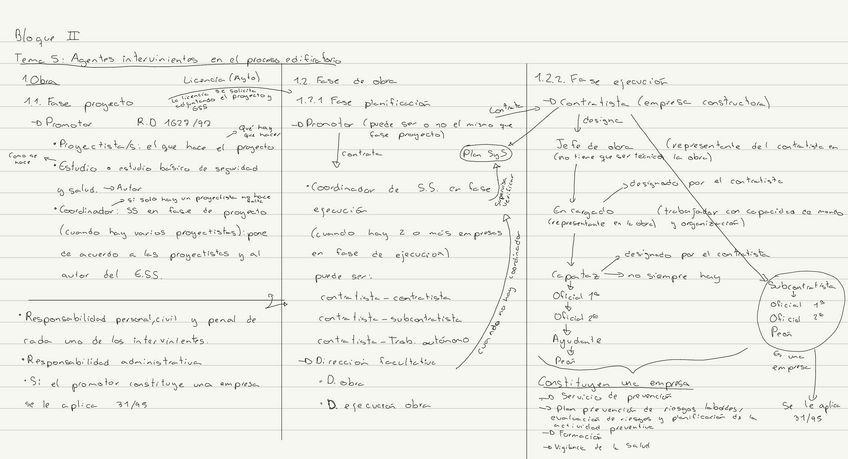 Bloque II
Tema 5: Agentes intervinientes en el proceso edificatorio
1. Obra
Licencia (Ayto)
La licencia se solicita adjuntando el proyecto y ESS
1.1. Fase proyecto
→ Promotor R.D 1627/97
Qué hay que hacer
• Proyectista/s: el que hace el proyecto
Como se hace
• Estudio o estudio básico de seguridad
y salud. → Autor
→ si solo hay un proyectista no hace falta
• Coordinador: SS en fase de proyecto
(cuando hay varios proyectistas): pone
de acuerdo a los proyectistas y al
autor del E.S.S.
• Responsabilidad personal, civil y penal de
cada uno de los intervinientes.
• Responsabilidad administrativa
• Si el promotor constituye una empresa
se le aplica 31/95
1.2. Fase de obra
1.2.1 Fase planificación
→ Promotor (puede ser o no el mismo que
fase proyecto)
contrata
• Coordinador de S.S. en fase
ejecución
(cuando hay 2 o más empresas
en fase de ejecución)
puede ser:
contratista - contratista
contratista - subcontratista
contratista - Trab. autónomo
→ Dirección facultativa
• D. obra
• D. ejecución obra
Contrata
Plan SyS
Supervisa
verificar
cuando no hay coordinador
1.2.2. Fase ejecución
→ Contratista (empresa constructora)
designa
Jefe de obra (representante del contratista en
(no tiene que ser técnico) la obra)
designado por el contratista
Encargado (trabajador con capacidad de mando
(representante en la obra) y organización)
designado por el contratista
Capataz → no siempre hay
Oficial 1ª
Oficial 2ª
Ayudante
Peón
Subcontratista
Oficial 1ª
Oficial 2ª
Peón
es una
empresa
se le aplica
31/95
Constituyen una empresa
→ Servicio de prevención
→ Plan prevención de riesgos laborales,
evaluación de riesgos y planificación de la
actividad preventiva
→ Formación
→ Vigilancia de la salud